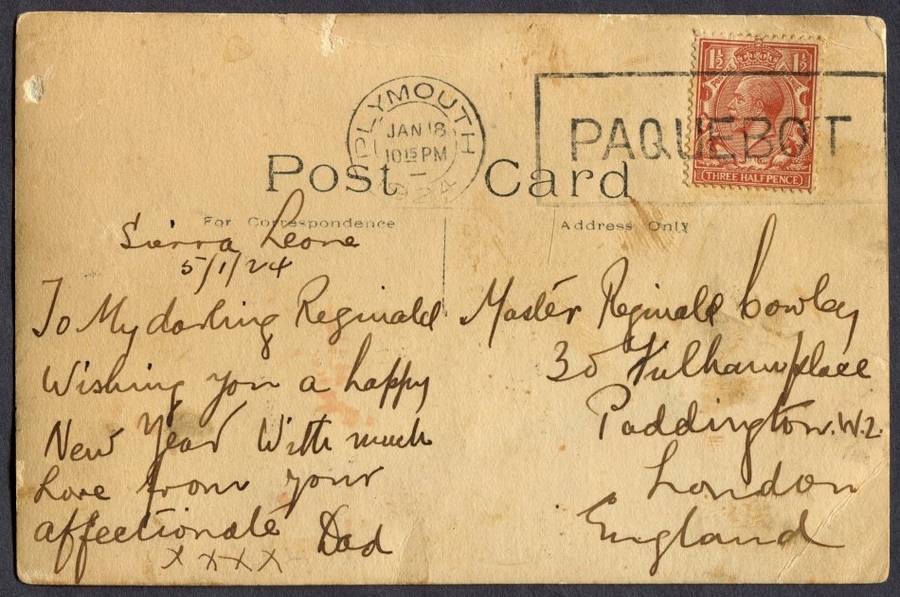 PLYMOUTH
JAN 18
10 15 PM
1924
PAQUEBOT
1½ 1½
THREE HALFPENCE
Post Card
For Correspondence
Address Only
Sierra Leone
5/1/24
To My darling Reginald
Wishing you a happy
New Year With much
Love from your
affectionate Dad
xxxx
Master Reginald Cowley
30 Fulham place
Paddington. W.2.
London
England